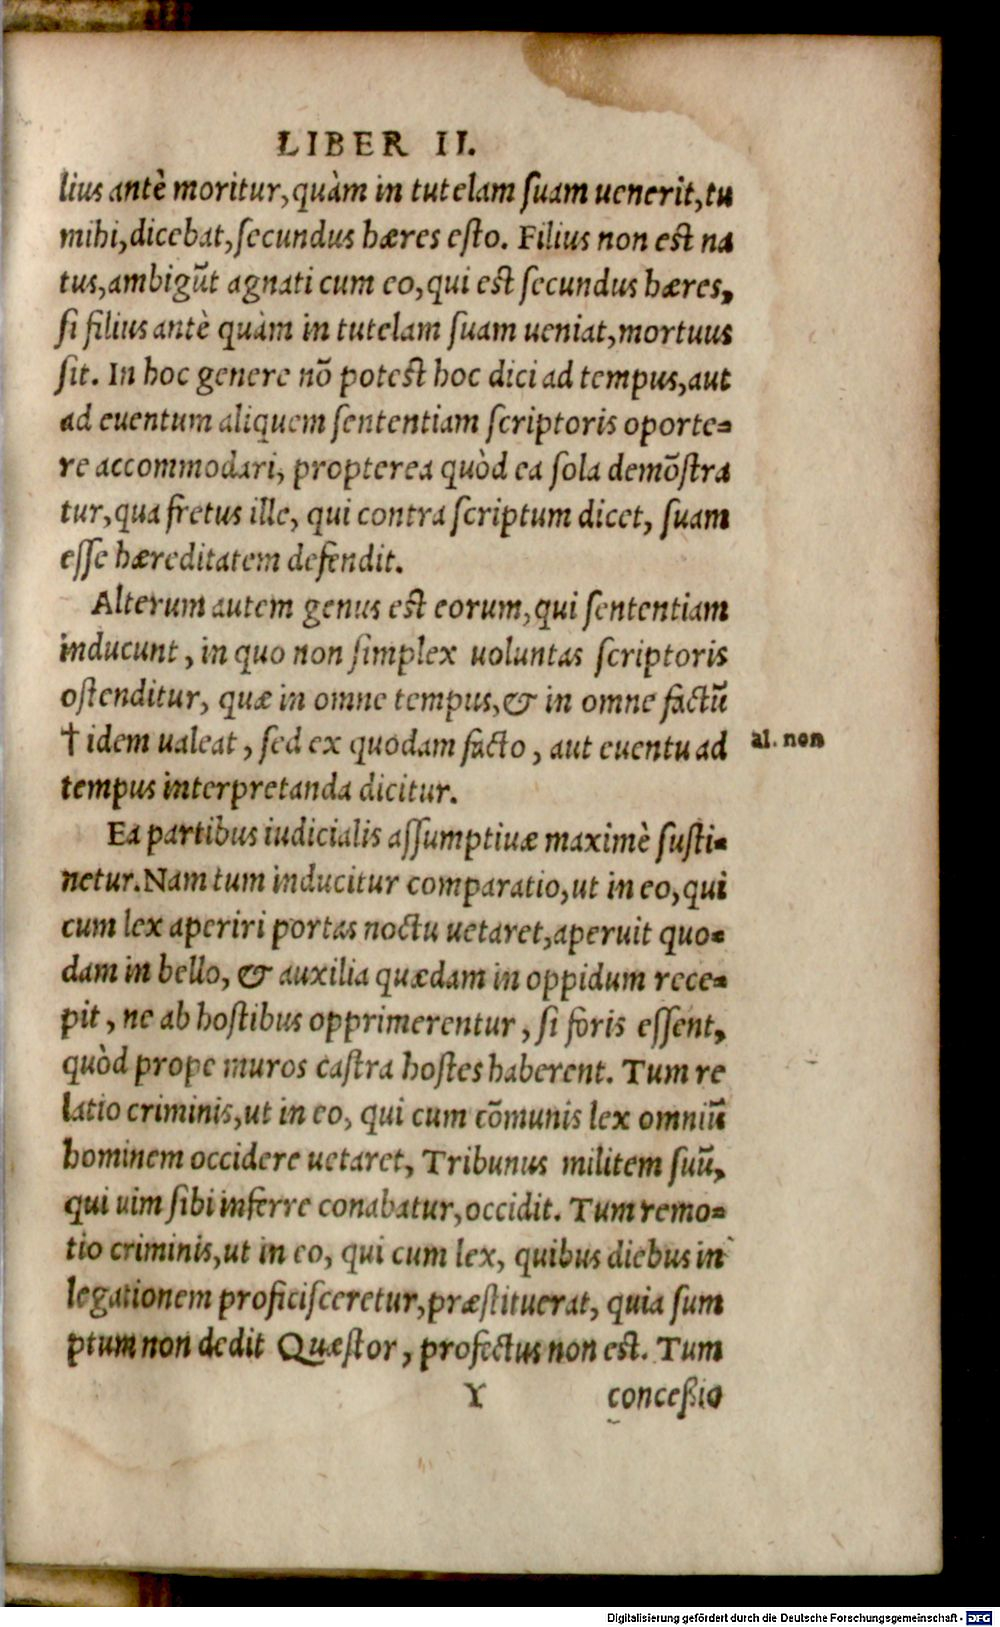 LIBER II.
lius antè moritur, quàm in tutelam ſuam uenerit, tu
mihi, dicebat, ſecundus hæres eſto. Filius non eſt na
tus, ambigũt agnati cum eo, qui eſt ſecundus hæres,
ſi filius antè quàm in tutelam ſuam ueniat, mortuus
ſit. In hoc genere nõ poteſt hoc dici ad tempus, aut
ad euentum aliquem ſententiam ſcriptoris oporte=
re accommodari, propterea quòd ea ſola demõſtra
tur, qua fretus ille, qui contra ſcriptum dicet, ſuam
eſſe hæreditatem defendit.
Alterum autem genus eſt eorum, qui ſententiam
inducunt, in quo non ſimplex uoluntas ſcriptoris
oſtenditur, quæ in omne tempus, & in omne factũ
† idem ualeat, ſed ex quodam facto, aut euentu ad al. non
tempus interpretanda dicitur.
Ea partibus iudicialis aſſumptiuæ maximè ſuſti=
netur. Nam tum inducitur comparatio, ut in eo, qui
cum lex aperiri portas noctu uetaret, aperuit quo=
dam in bello, & auxilia quædam in oppidum rece=
pit, ne ab hoſtibus opprimerentur, ſi foris eſſent,
quòd prope muros caſtra hoſtes haberent. Tum re
latio criminis, ut in eo, qui cum cõmunis lex omniũ
hominem occidere uetaret, Tribunus militem ſuũ,
qui uim ſibi inferre conabatur, occidit. Tum remo=
tio criminis, ut in eo, qui cum lex, quibus diebus in
legationem proficiſceretur, præſtituerat, quia ſum
ptum non dedit Quæſtor, profectus non eſt. Tum
Y conceßio
Digitalisierung gefördert durch die Deutsche Forschungsgemeinschaft - DFG